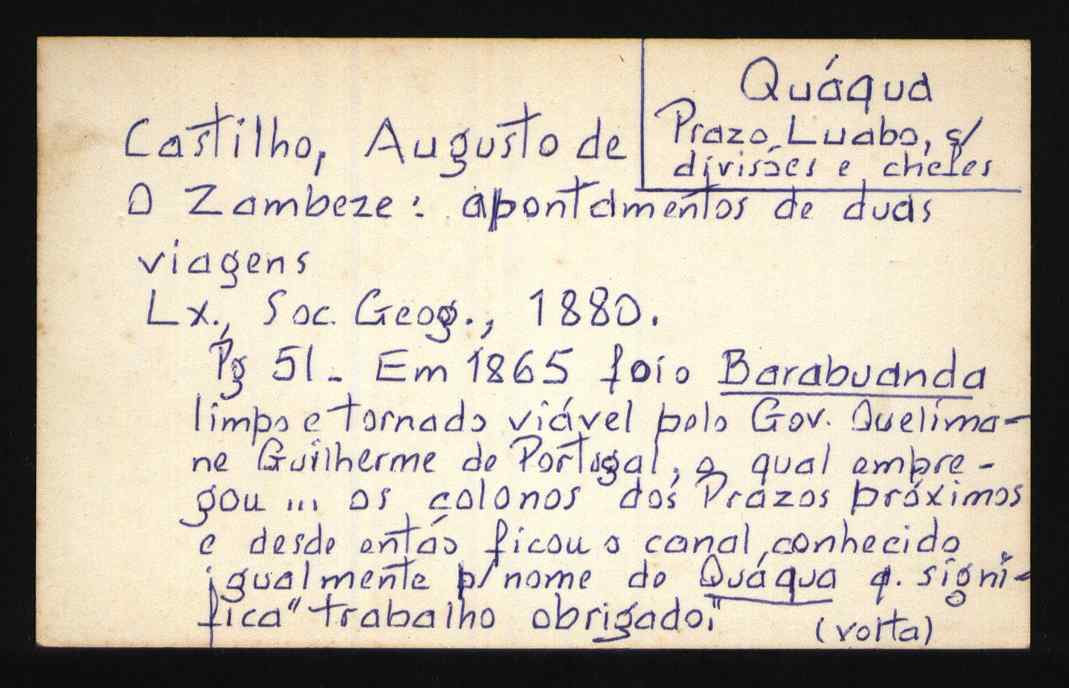 Quáqua
Prazo, Luabo, s/
divisões e chefes
Castilho, Augusto de
O Zambeze: apontamentos de duas
viagens
Lx., Soc. Geog., 1880.
Pg 51_ Em 1865 foi o Barabuanda
limpo e tornado viável pelo Gov. Quelima-
ne Guilherme de Portugal, o qual empre-
gou ... os colonos dos Prazos próximos
e desde então ficou o canal, conhecido
igualmente p/ nome de Quáqua q. signi-
fica "trabalho obrigado."
(volta)